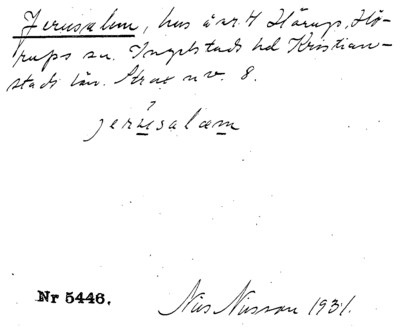 Jerusalem, hus å nr 4 Hörup, Hö-
rups sn. Ingelstads hd Kristian-
stads län. Strax n v. 8.
jerusalæm
Nr 5446. Nils Nilsson 1931.